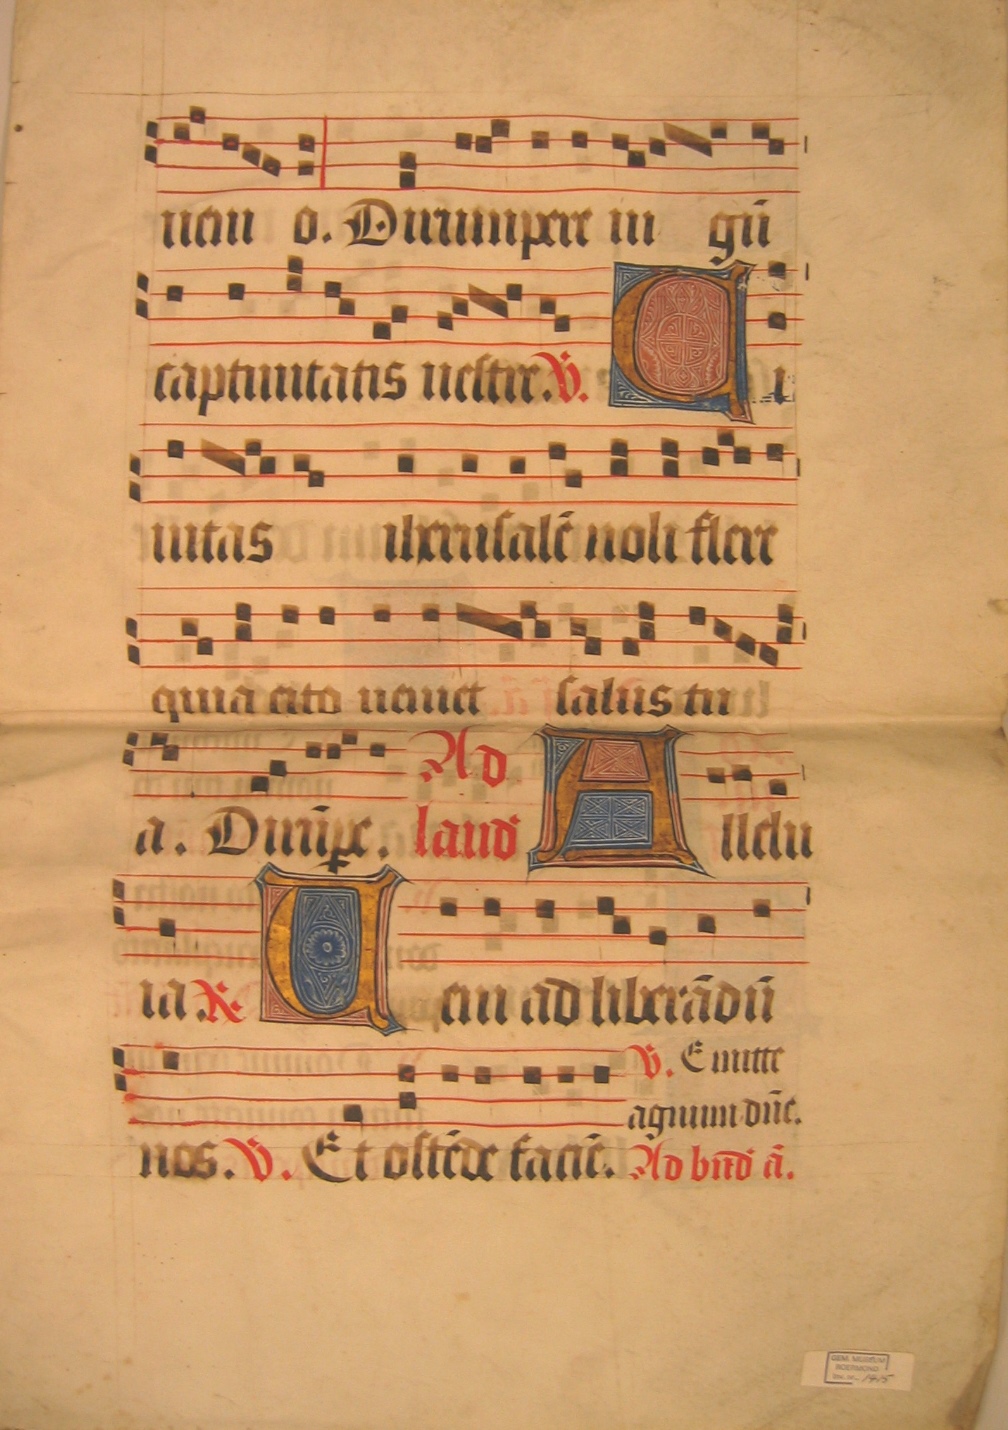 nem o. Dirumpere iugū
captiuitatis nostre. V. Ci
uitas iherusalē noli flere
quia cito ueniet salus tu
a. Dirūpe. Ad laud Allelu
ia R Ueni ad liberādū
nos. V. Et ostēde faciē. V. Emitte
agnum dn̄e.
Ad bn̄d ā.
GEM. MUSEUM
ROERMOND
Inv. nr. 1415